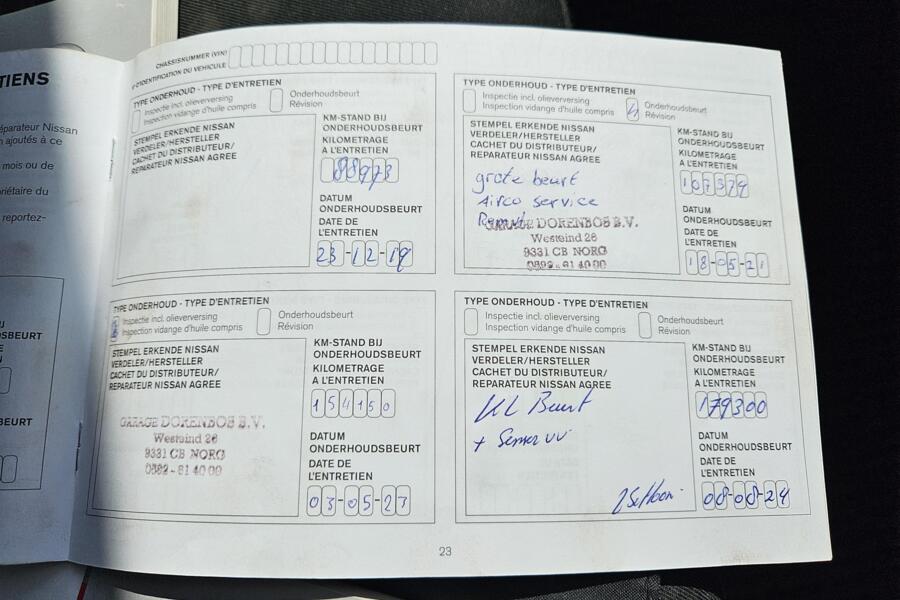 TIENS
éparateur Nissan
n ajoutés à ce
mois ou de
riétaire du
reportez-
SBEURT
EURT
CHASSISNUMMER (VIN)
N° D'IDENTIFICATION DU VEHICULE
TYPE ONDERHOUD - TYPE D'ENTRETIEN
Inspectie incl. olieverversing
Inspection vidange d'huile compris
Onderhoudsbeurt
Révision
STEMPEL ERKENDE NISSAN
VERDELER/HERSTELLER
CACHET DU DISTRIBUTEUR/
REPARATEUR NISSAN AGREE
KM-STAND BIJ
ONDERHOUDSBEURT
KILOMETRAGE
A L'ENTRETIEN
88973
DATUM
ONDERHOUDSBEURT
DATE DE
L'ENTRETIEN
23-12-19
TYPE ONDERHOUD - TYPE D'ENTRETIEN
Inspectie incl. olieverversing
Inspection vidange d'huile compris
Onderhoudsbeurt
Révision
STEMPEL ERKENDE NISSAN
VERDELER/HERSTELLER
CACHET DU DISTRIBUTEUR/
REPARATEUR NISSAN AGREE
grote beurt
Airco service
GARAGE DORENBOS B.V.
Westeind 26
9331 CB NORG
0592-61 40 00
KM-STAND BIJ
ONDERHOUDSBEURT
KILOMETRAGE
A L'ENTRETIEN
107379
DATUM
ONDERHOUDSBEURT
DATE DE
L'ENTRETIEN
18-05-21
TYPE ONDERHOUD - TYPE D'ENTRETIEN
Inspectie incl. olieverversing
Inspection vidange d'huile compris
Onderhoudsbeurt
Révision
STEMPEL ERKENDE NISSAN
VERDELER/HERSTELLER
CACHET DU DISTRIBUTEUR/
REPARATEUR NISSAN AGREE
GARAGE DORENBOS B.V.
Westeind 26
9331 CB NORG
0592-61 40 00
KM-STAND BIJ
ONDERHOUDSBEURT
KILOMETRAGE
A L'ENTRETIEN
154150
DATUM
ONDERHOUDSBEURT
DATE DE
L'ENTRETIEN
03-05-23
TYPE ONDERHOUD - TYPE D'ENTRETIEN
Inspectie incl. olieverversing
Inspection vidange d'huile compris
Onderhoudsbeurt
Révision
STEMPEL ERKENDE NISSAN
VERDELER/HERSTELLER
CACHET DU DISTRIBUTEUR/
REPARATEUR NISSAN AGREE
KL Beurt
+
KM-STAND BIJ
ONDERHOUDSBEURT
KILOMETRAGE
A L'ENTRETIEN
179300
DATUM
ONDERHOUDSBEURT
DATE DE
L'ENTRETIEN
08-08-24
23